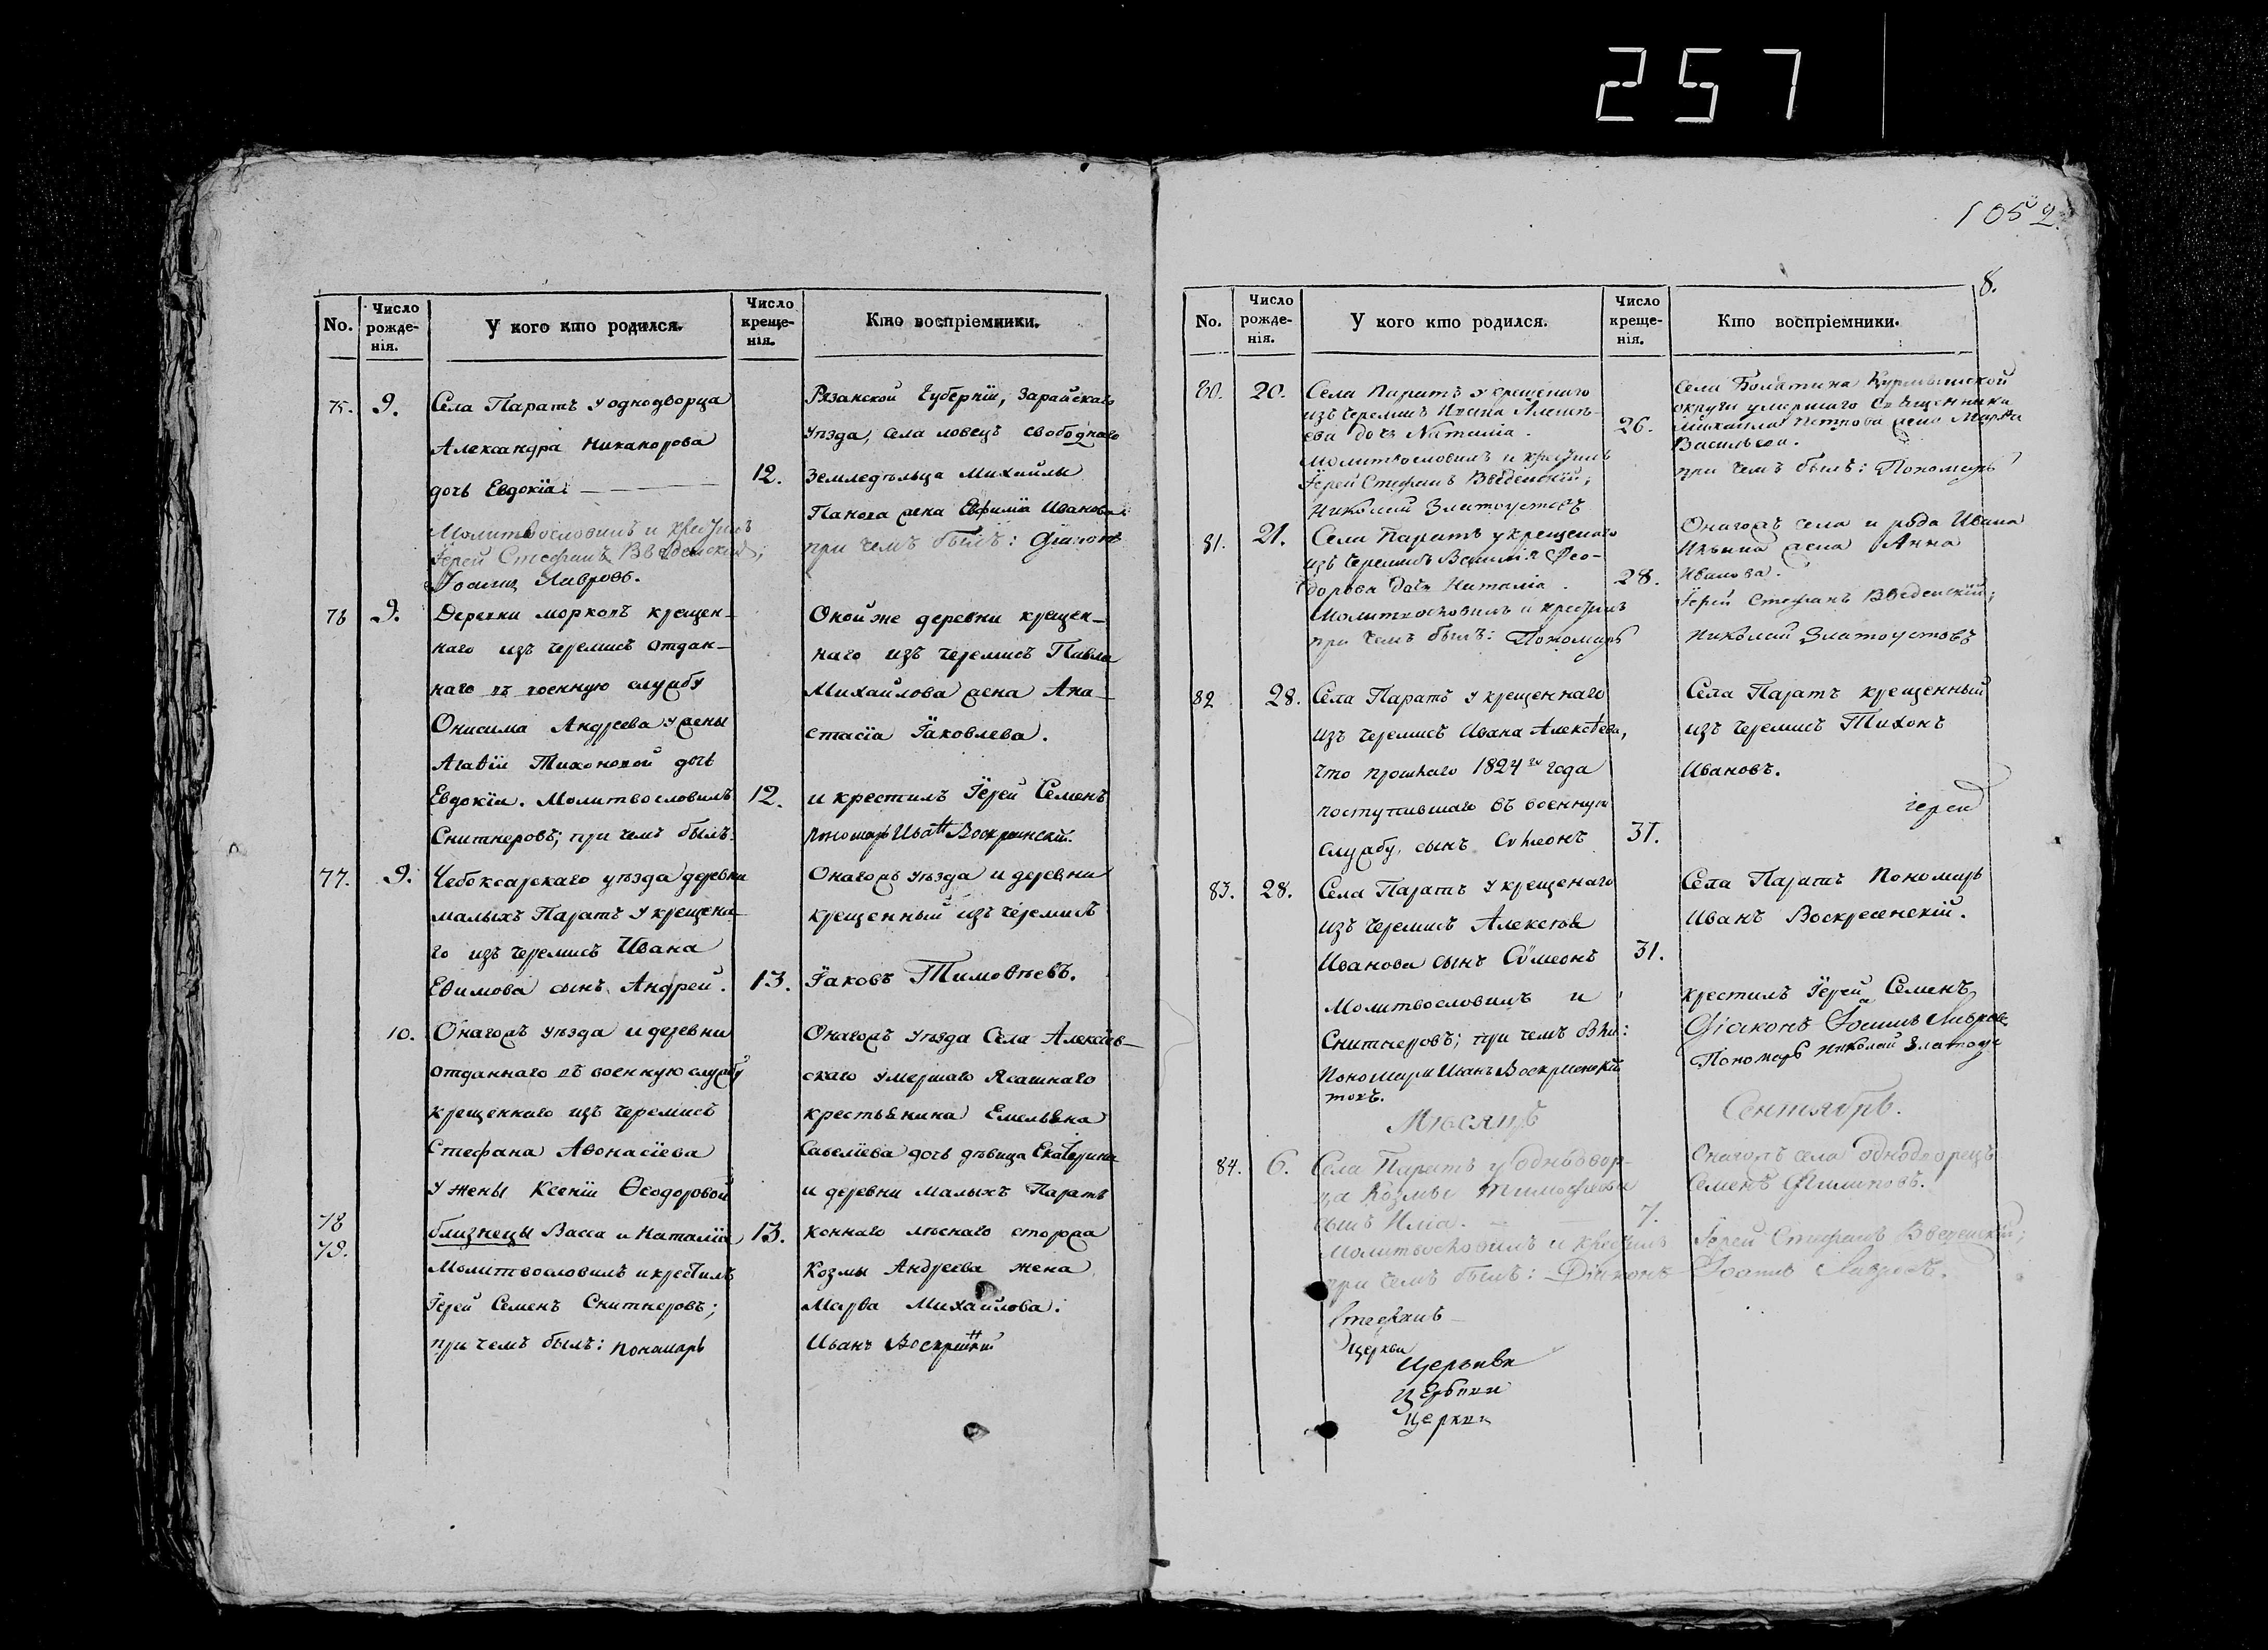 257
1052.
8.
No.
Число рожде-нія.
У кого кто родился.
Число креще-нія.
Кто воспріемники.
75. 9. Села Паратъ у однодворца
Александра Никанорова
дочь Евдокіа.
12.
Молитвословилъ и крестилъ
Іерей Стефанъ Введенскій;
Іоаннъ Лавровъ.
Рязанской Губерніи, Зарайскаго
уѣзда, села ловецъ свободнаго
Земледѣльца Михайлы
Панова жена Евфиміа Иванова.
при чемъ былъ: Діаконъ
76 9. Деревни морковъ крещен-
наго изъ черемисъ отдан-
наго въ военную службу
Онисима Андреева у жены
Агаѳіи Тихоновой дочь
Евдокіи. Молитвословилъ 12.
Снитнеровъ; при чемъ былъ:
Оной же деревни крещен-
наго изъ черемисъ Павла
Михайлова жена Ана-
стасіа Іаковлева.
и крестилъ Іерей Семенъ
пономарь Иванъ Воскресенскій.
77. 9. Чебоксарскаго уѣзда деревни
малыхъ Паратъ у крещена-
го изъ черемисъ Ивана
Еѳимова сынъ Андрей. 13.
Онагожъ уѣзда и деревни
крещенный изъ черемисъ
Іаковъ Тимоѳѣевъ.
10. Онагожъ уѣзда и деревни
отданнаго въ военную службу
крещеннаго изъ черемисъ
Стефана Аѳонасіева
у жены Ксеніи Ѳеодоровой
78 близнецы Васса и Наталіа, 13.
79.
Молитвословилъ и крестилъ
Іерей Семенъ Снитнеровъ;
при чемъ былъ: пономарь
Онагожъ уѣзда Села Алексіев-
скаго умершаго Ясашнаго
крестьянина Емельяна
Савеліева дочь дѣвица Екатерина
и деревни малыхъ Паратъ
коннаго лѣснаго сторожа
Козмы Андреева жена
Марѳа Михайлова.
Иванъ
No.
Число рожде-нія.
У кого кто родился.
Число креще-нія.
Кто воспріемники.
80. 20. Села Паратъ у крещенаго
изъ черемисъ Ивана Алексѣ-
ева дочь Наталіа. 26.
Молитвословилъ и крестилъ
Іерей Стефанъ Введенскій;
Николай Златоустовъ
Села Болатина Курмышской
округи умершаго Священника
Михаила Петрова жена Марѳа
Васильева.
при чемъ былъ: Пономарь
81. 21. Села Паратъ у крещенаго
изъ черемисъ Василія Фео-
дорова дочь Наталіа. 28.
Молитвословилъ и крестилъ
при чемъ былъ: Пономарь
Онагожъ села и рода Ивана
Ильина жена Анна
Иванова.
Іерей Стефанъ Введенскій;
Николай Златоустовъ
82 28. Села Паратъ у крещеннаго
изъ черемисъ Ивана Алексѣева,
что прошлаго 1824го года
поступившаго въ военную
службу, сынъ Сѵмеонъ 31.
Села Паратъ крещенный
изъ черемисъ Тихонъ
Ивановъ.
іерей
83. 28. Села Паратъ у крещенаго
изъ черемисъ Алексѣя
Иванова сынъ Сѵмеонъ 31.
Молитвословилъ и
Снитнеровъ; при чемъ были:
Пономари Иванъ Воскресенскій
товъ.
Села Паратъ пономарь
Иванъ Воскресенскій.
крестилъ Іерей Семенъ
Діаконъ Іоаннъ Лавровъ
Пономарь Николай Златоус
Мѣсяцъ Сентябрь.
84. 6. Села Паратъ у однодвор-
ца Козмы Тимофеева
сынъ Иліа. 7.
Молитвословилъ и крестилъ
при чемъ былъ: Діаконъ
Онагожъ села однодворецъ
Семенъ Филиповъ.
Іерей Стефанъ Введенскій;
Іоаннъ Лавровъ.
церкви